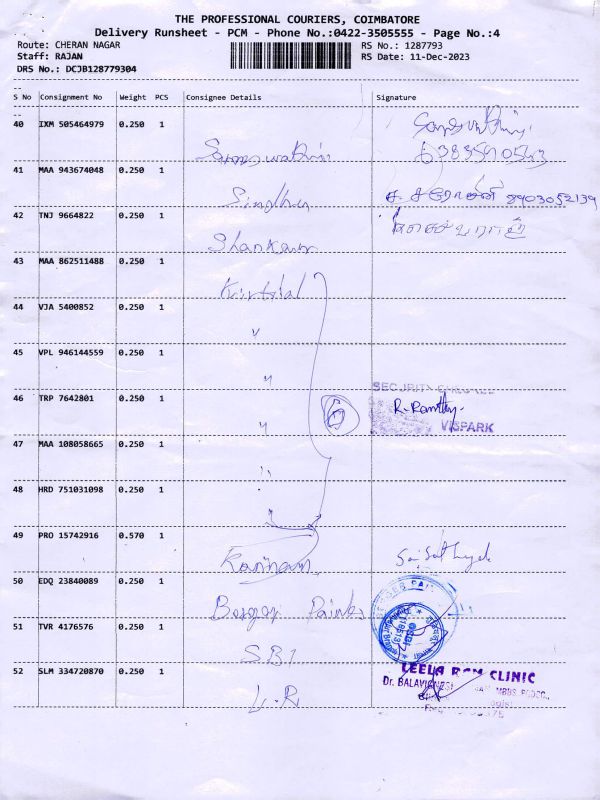 THE PROFESSIONAL COURIERS, COIMBATORE
Delivery Runsheet - PCM - Phone No.:0422-3505555 - Page No.:4
Route: CHERAN NAGAR
RS No.: 1287793
Staff: RAJAN
RS Date: 11-Dec-2023
DRS No.: DCJB128779304
S No Consignment No Weight PCS Consignee Details Signature
40 IXM 505464979 0.250 1
41 MAA 943674048 0.250 1 Sindhu 8903052139
42 TNJ 9664822 0.250 1 Shankar
43 MAA 862511488 0.250 1 Kirtilal
44 VJA 5400852 0.250 1 "
45 VPL 946144559 0.250 1 "
46 TRP 7642801 0.250 1 " 6 SECURITY VISPARK
47 MAA 108058665 0.250 1 "
48 HRD 751031098 0.250 1 "
49 PRO 15742916 0.570 1 Kannan
50 EDQ 23840089 0.250 1 Berger Paints
51 TVR 4176576 0.250 1 S.B.I
52 SLM 334720870 0.250 1 L.R LEELA RAM CLINIC